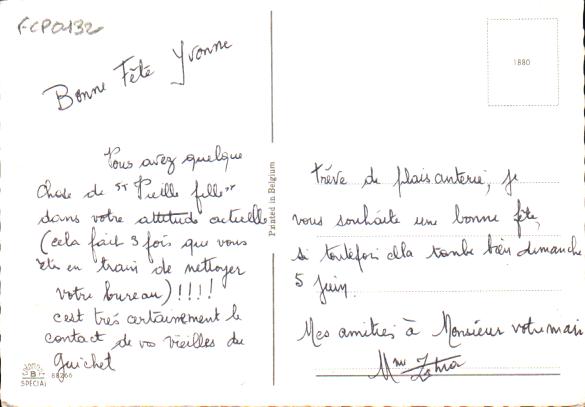 FCP0132
Bonne Fête Yvonne
1880
Vous avez quelque
chose de "Vieille fille"
dans votre attitude actuelle
(cela fait 3 fois que vous
êtes en train de nettoyer
votre bureau)!!!!
c'est très certainement le
contact de vos vieilles du
guichet
Printed in Belgium
trêve de plaisanterie, je
vous souhaite une bonne fête,
si toutefois elle tombe bien dimanche
5 juin.
Mes amitiés à Monsieur votre mari
Mme
B
88266
SPECIAL